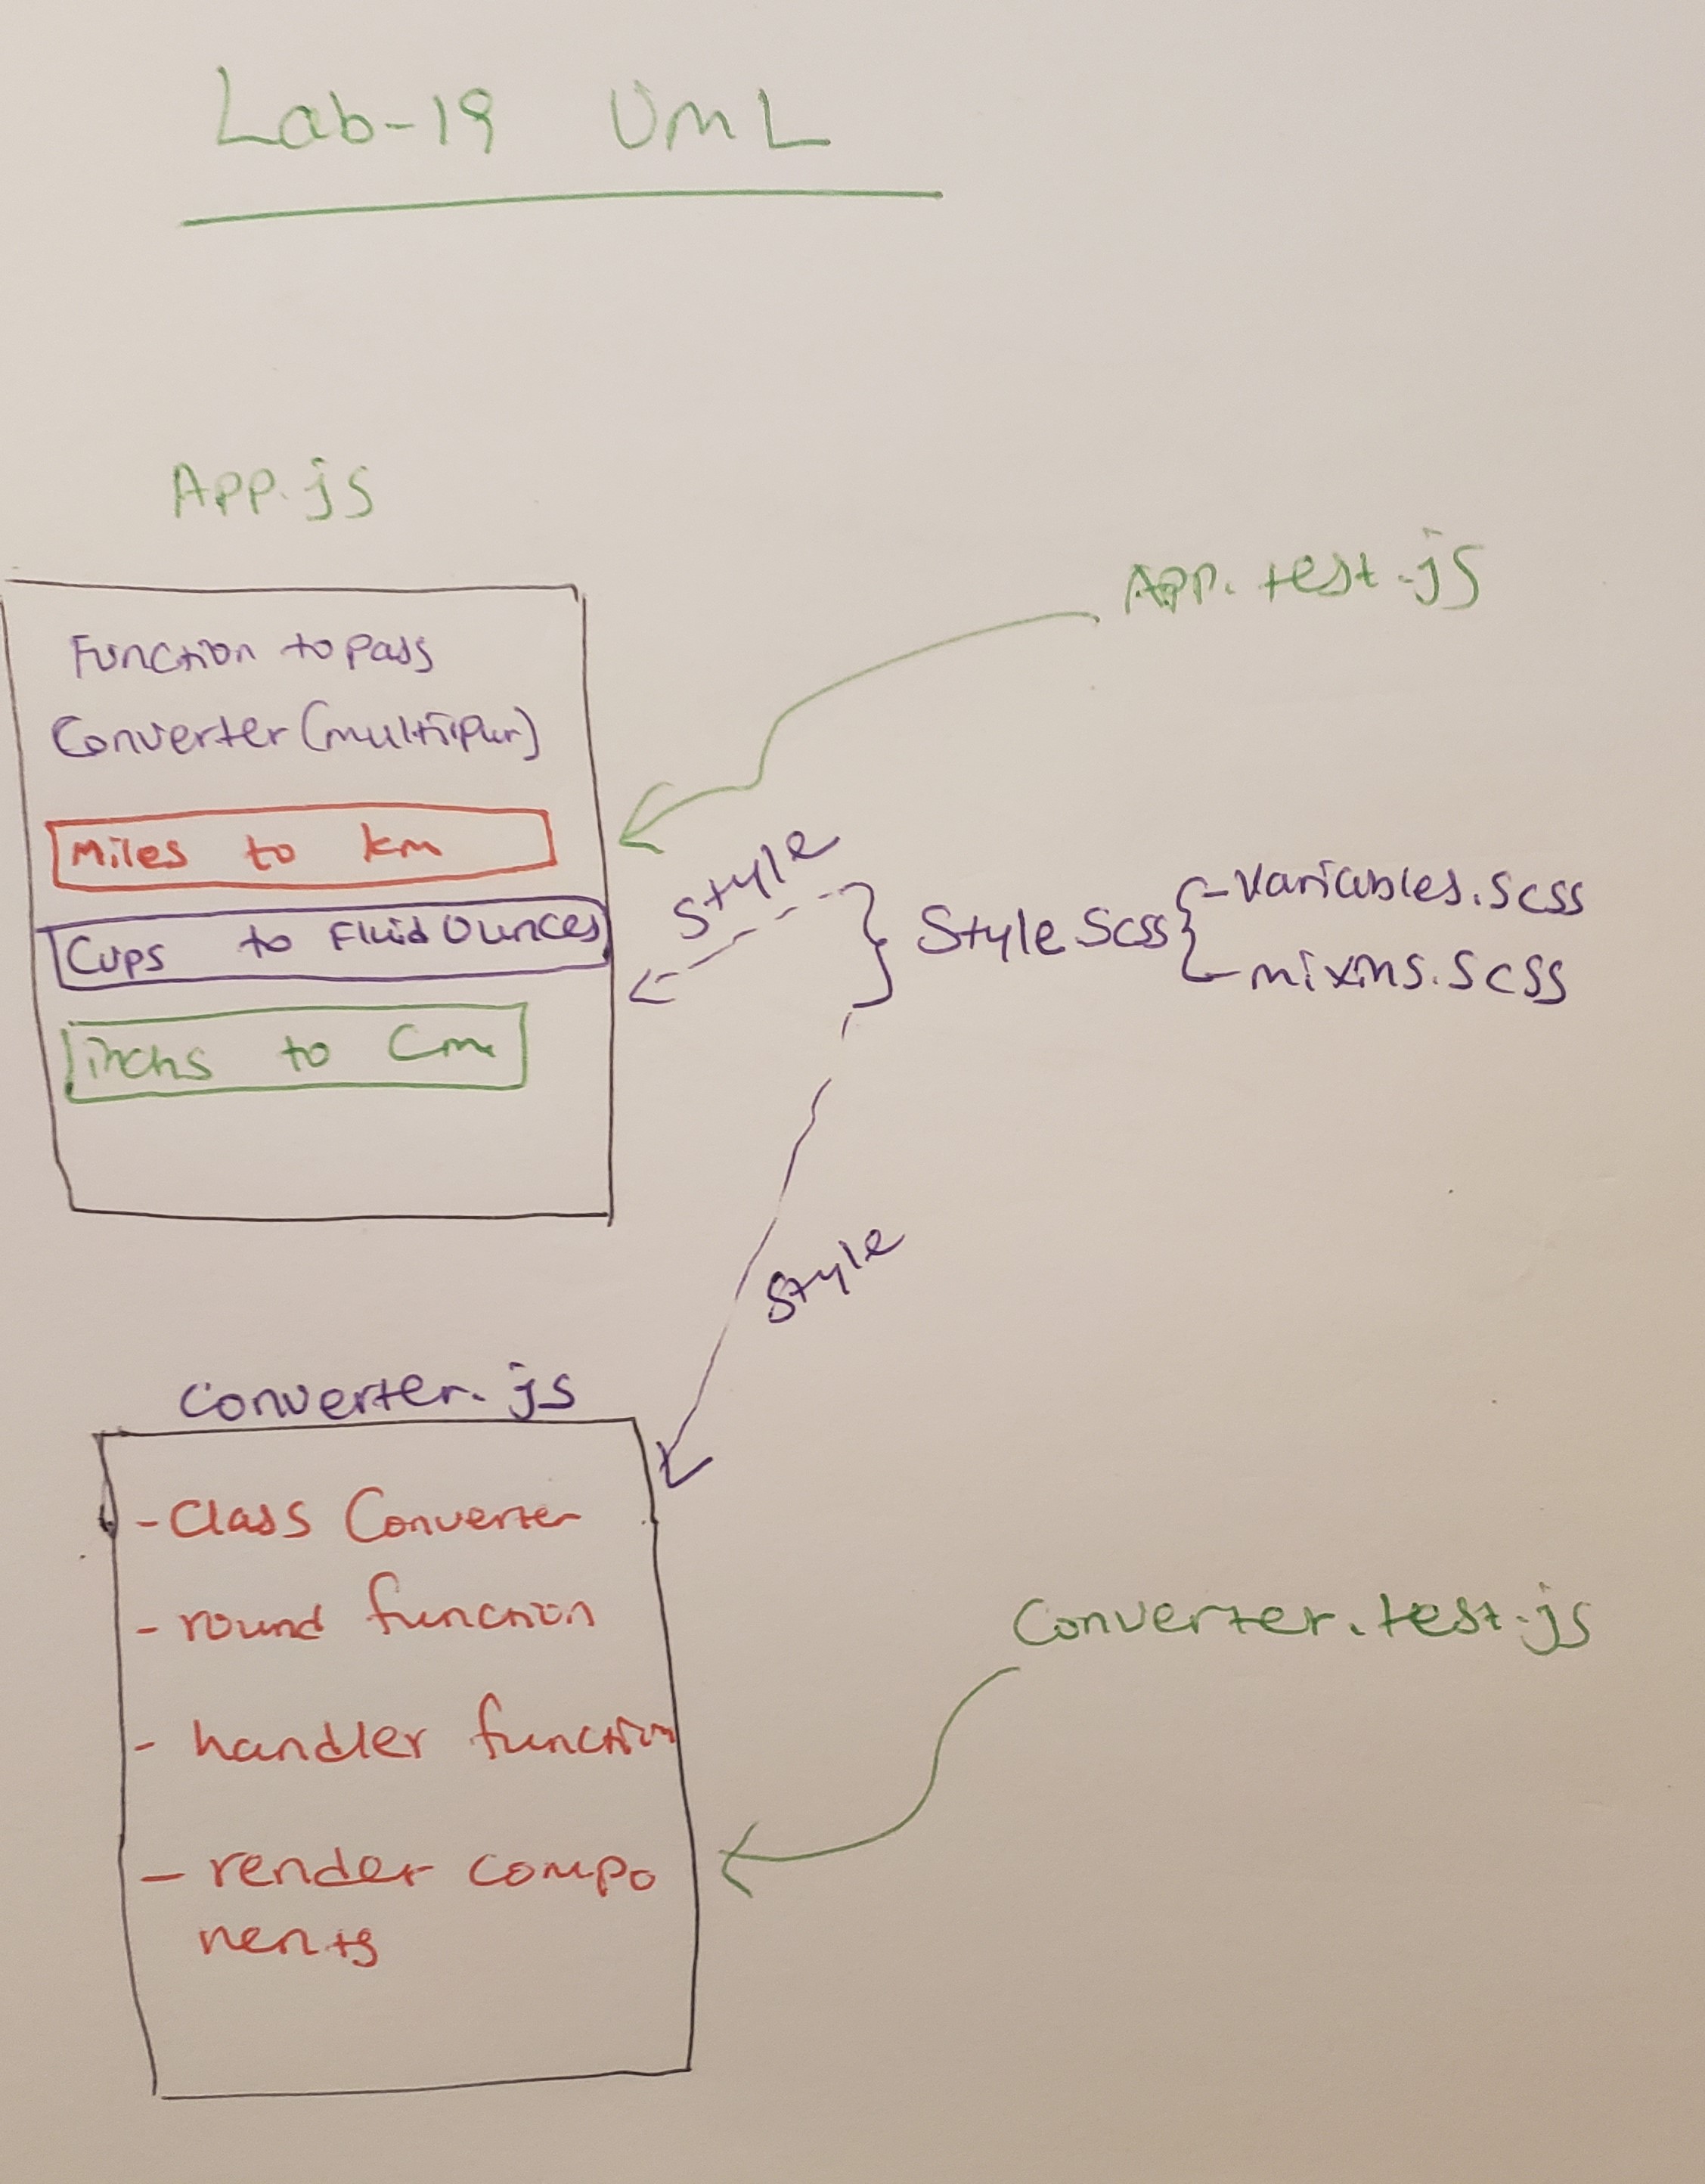 Lab-19 UML
App.js
Function to pass
Converter(multiipur)
Miles to km
Cups to Fluid Ounces
inchs to Cm
App.test.js
Style
Style Scss
-Variables.scss
-mixins.scss
Style
Converter.js
- Class Converter
- round function
- handler function
- render compo
nents
Converter.test.js